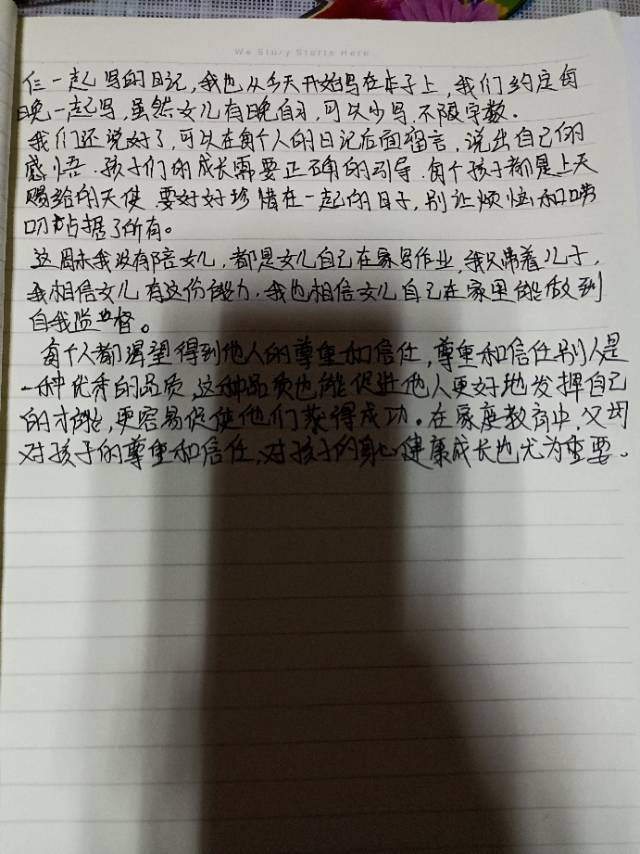 We Story Starts Here
仨一起写的日记，我也从今天开始写在本子上，我们约定每
晚一起写，虽然女儿有晚自习，可以少写，不限字数。
我们还说好了，可以在每个人的日记后面留言，说出自己的
感悟。孩子们的成长需要正确的引导，每个孩子都是上天
赐给的天使，要好好珍惜在一起的日子，别让烦恼和唠
叨占据了所有。
这周末我没有陪女儿，都是女儿自己在家写作业，我只带着儿子，
我相信女儿有这份能力，我也相信女儿自己在家里能做到
自我监督。
每个人都渴望得到他人的尊重和信任，尊重和信任别人是
一种优秀的品质，这种品质也能促进他人更好地发挥自己
的才能，更容易促使他们获得成功。在家庭教育中，父母
对孩子的尊重和信任，对孩子的身心健康成长也尤为重要。